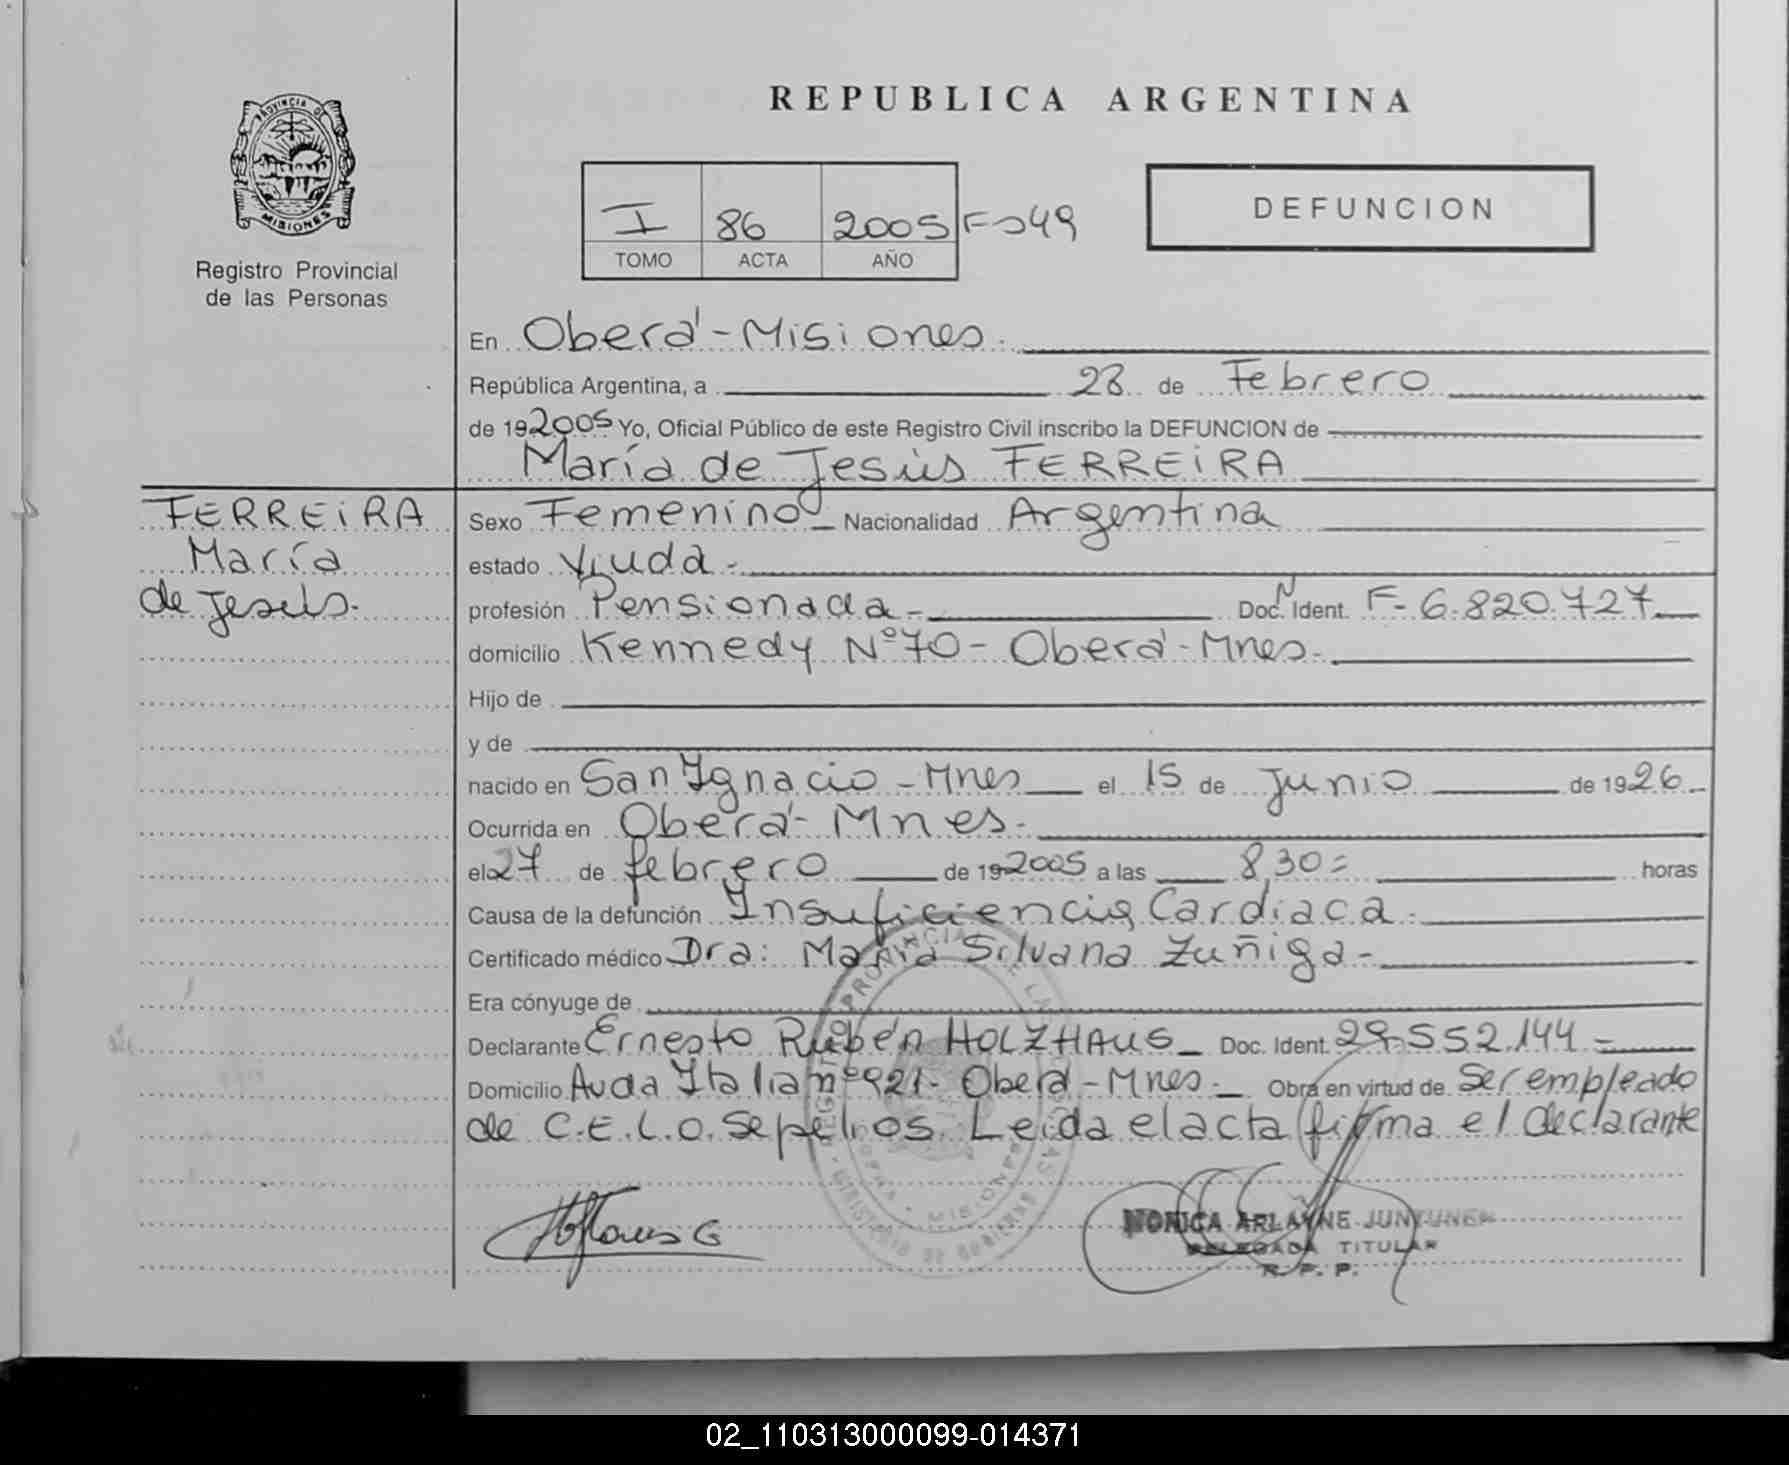 PROVINCIA DE
MISIONES
Registro Provincial
de las Personas
REPUBLICA ARGENTINA
I 86 2005 Fº49
TOMO ACTA AÑO
DEFUNCION
En Oberá - Misiones.
República Argentina, a 28 de Febrero
de 19 2005 Yo, Oficial Público de este Registro Civil inscribo la DEFUNCION de
María de Jesús FERREiRA
FERREiRA
María
de Jesús.
Sexo Femenino Nacionalidad Argentina
estado Viuda.
profesión Pensionada - Doc. N Ident. F- 6.820.727
domicilio Kennedy Nº70 - Oberá - Mnes.
Hijo de
y de
nacido en San Ignacio - Mnes el 15 de Junio de 1926
Ocurrida en Oberá - Mnes.
el 27 de febrero de 19 2005 a las 8,30= horas
Causa de la defunción Insuficiencia Cardiaca.
Certificado médico Dra: María Silvana Zuñiga -
Era cónyuge de
Declarante Ernesto Rubén HOLZHAUS Doc. Ident. 29.552.144 =
Domicilio Avda Italia nº921 - Oberá - Mnes. Obra en virtud de Ser empleado
de C.E.L.O. Sepelios. Leída el acta firma el declarante
MONICA ARLAYNE JUNTUNEN
DELEGADA TITULAR
R. P. P.
02_110313000099-014371